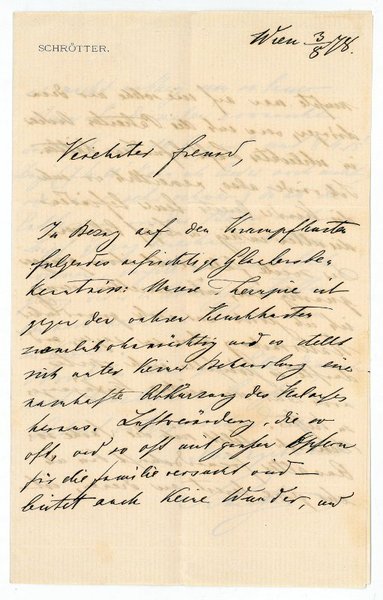 SCHRÖTTER.
Wien 3/8 78.
Verehrter Freund,
In Bezug auf den Krampfhusten
folgendes aufrichtige Glaubensbe-
kenntniss: Unsere Therapie ist
gegen den wahren Keuchhusten
ziemlich ohnmächtig und es stellt
sich unter keiner Behandlung eine
namhafte Abkürzung des Verlaufes
heraus. Luftveränderg, die so
oft, und so oft mit großen Opfern
für die Familie versucht wird –
leistet auch keine Wunder, und